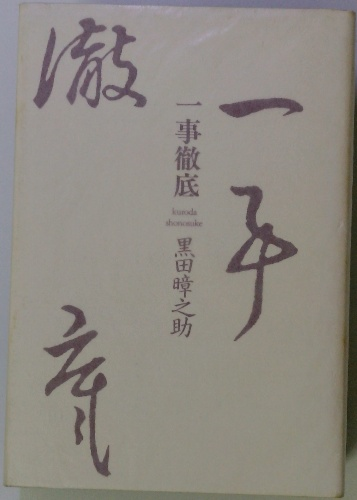 一事
徹底
一事徹底
kuroda
shonosuke
黒田暲之助